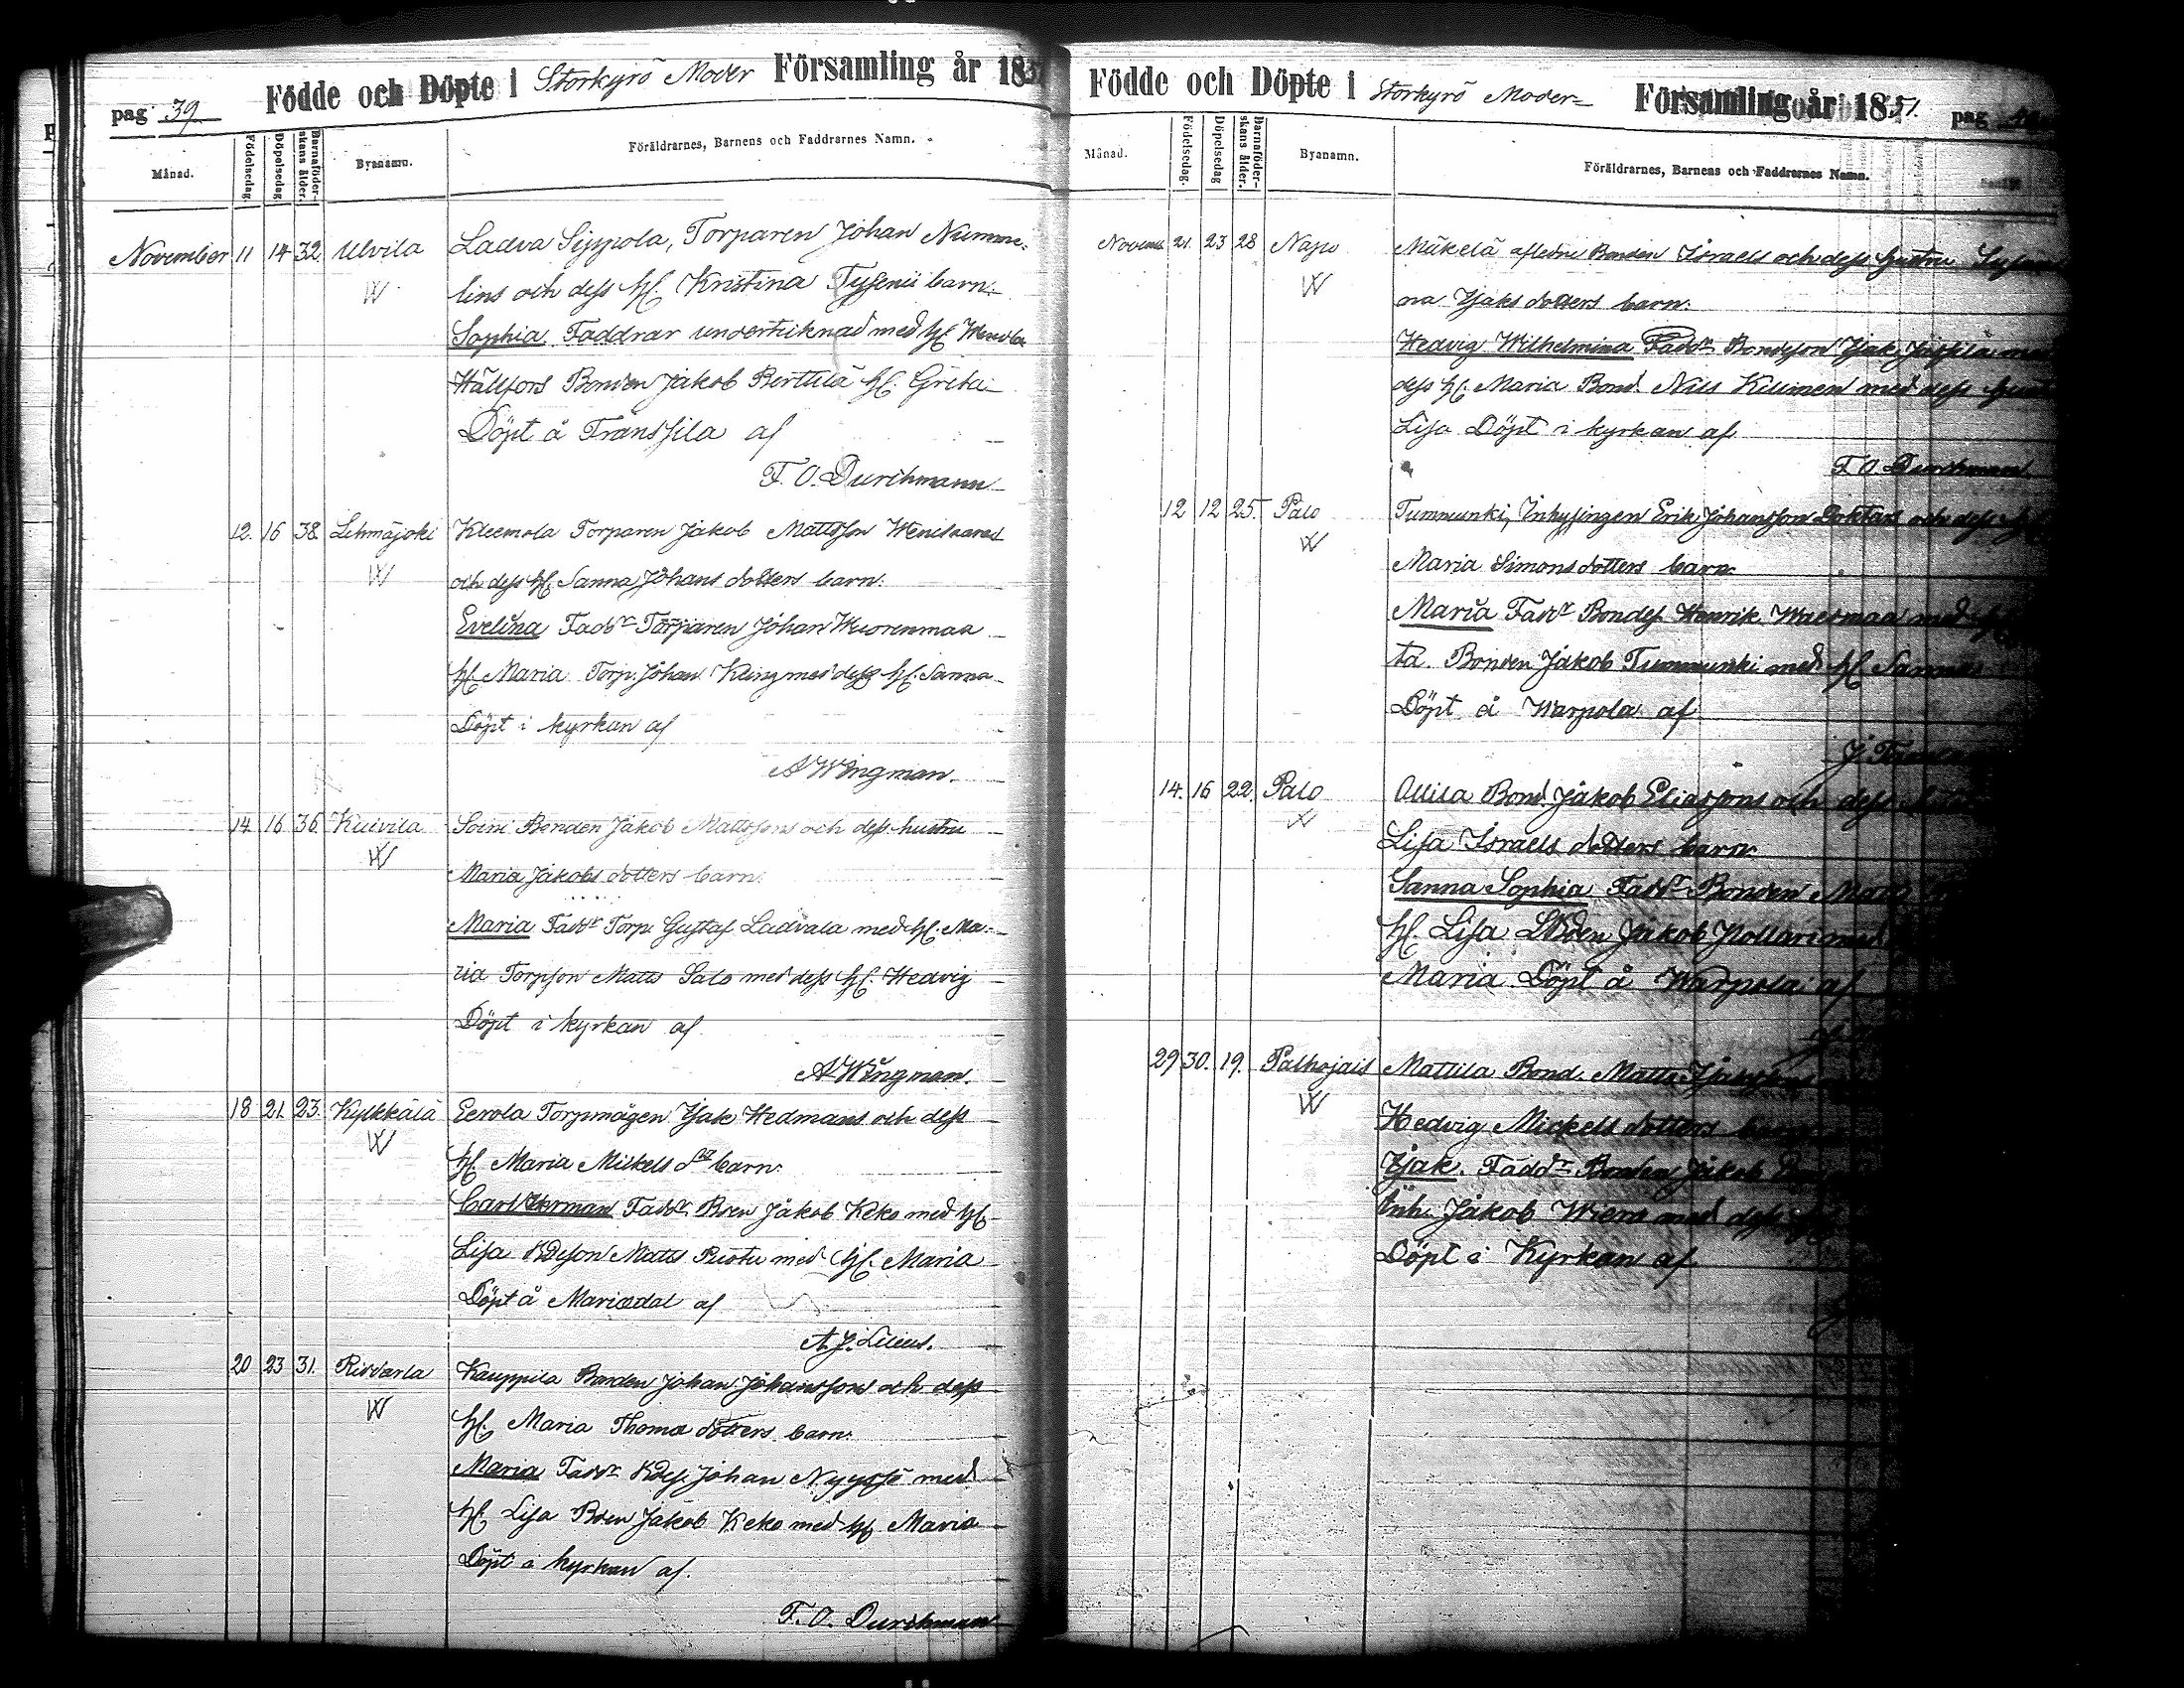 pag 39 Födde och Döpte i Storkyrö Moder Församling år 185
Månad. Födelsedag Döpelsedag Barnaföderskans ålder. Byanamn. Föräldrarnes, Barnens och Faddrarnes Namn.
November 11 14 32 Ulvila Ladva Sippola, Torparen Johan Numme-
W lins och dess H. Kristina barn.
Sophia Faddrar undertecknad med H.
Hällfors Bonden Jakob Perttilä H. Greta
Döpt å Transsila af
F. O. Durchmann
12. 16 38 Lehmäjoki Kleemola Torparen Jakob Mattsson
W och dess H. Sanna Johans dotters barn.
Evelina Fadd.r Torparen Johan Wuorenmaa
H. Maria Torp. Johan Kling med dess H. Sanna
Döpt i kyrkan af
A Wingman.
14 16 36 Kuivila Soini Bonden Jakob Mattssons och dess hustru
W Maria Jakobs dotters barn.
Maria Fadd.r Torp. Gustaf Ladvala med H. Ma-
ria Torpson Matts Salo med dess H. Hedvig
Döpt i kyrkan af
A Wingman.
18 21. 23. Kylkkälä Eerola Torpmågen Isak Hedmans och dess
W H. Maria Mickels d.r barn.
Carl Herman Fadd.r Bden Jakob Keko med H.
Lisa Bdeson Matts Ruotu med H. Maria
Döpt å Mariedal af
A. J. Lilius.
20 23 31. Riddarla Kauppila Bonden Johan Johanssons och dess
W H. Maria Thomæ dotters barn.
Maria Fadd.r Bdes. Johan Nyyssö med
H. Lisa Bden Jakob Keko med H. Maria
Döpt i kyrkan af.
F. O. Durchman
Födde och Döpte i Storkyrö Moder- Församling år 1851. pag
Månad. Födelsedag. Döpelsedag Barnaföderskans ålder. Byanamn. Föräldrarnes, Barnens och Faddrarnes Namn.
Novemb. 21. 23 28 Napo Mäkelä afledne Bonden Israels och dess hustru
W Isaks dotters barn.
Hedvig Wilhelmina Fadd.r Bondeson Isak
dess H. Maria Bond. Nils Kuminen med dess
Lisa Döpt i kyrkan af
F. O. Durchmann
12 12 25. Palo Tummunki, Inhysingen Erik Johansson och dess H.
W Maria Simons dotters barn
Maria Fadd.r Bondes. Henrik Waesmaa med H.
ta. Bonden Jakob Tummunki med H. Sanna
Döpt å Warpola af
14. 16 22. Palo Ollila Bond. Jakob Eliassons och dess
W Lisa Israels dotters barn.
Sanna Sophia Fadd.r Bonden Matts
H. Lisa Bden Jakob Pollari med
Maria Döpt å Warpola af
29 30. 19. Palhojais Mattila Bond. Matts
W Hedvig Mickels dotters barn
Isak. Fadd.r Bonden Jakob
Inh. Jakob Wiera med dess H.
Döpt i Kyrkan af